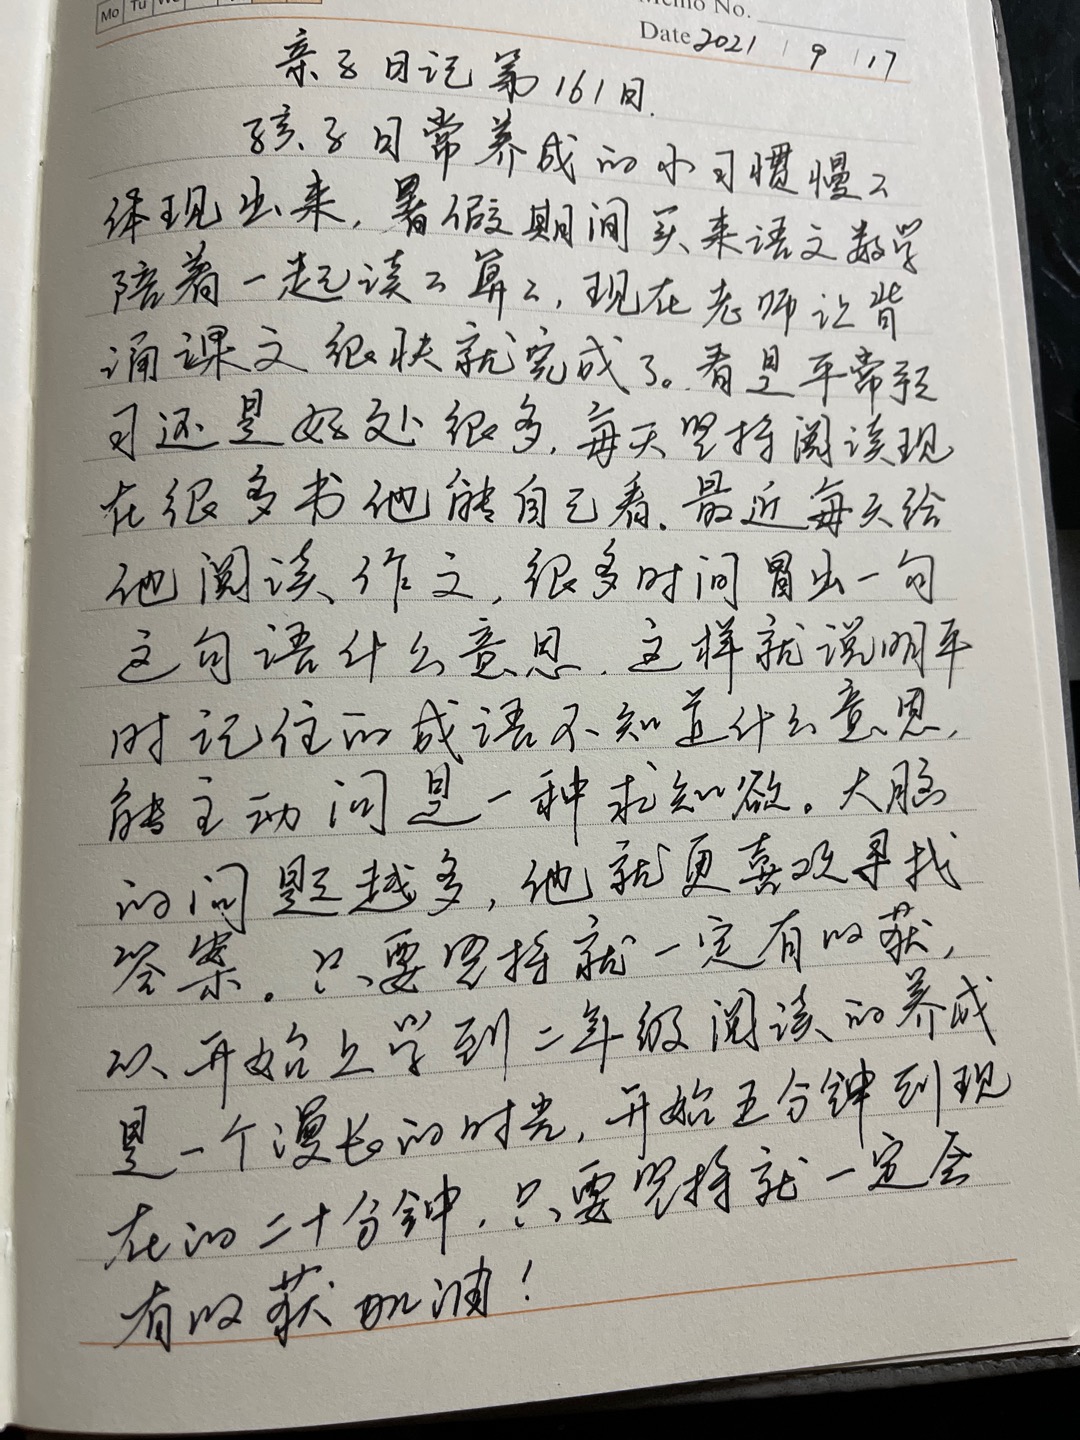 Mo Tu We
Memo No.
Date 2021 / 9 / 17
亲子日记第161日.
孩子日常养成的小习惯慢々
体现出来,暑假期间买来语文数学
陪着一起读々算々,现在老师让背
诵课文很快就完成了。看是平常预
习还是好处很多,每天坚持阅读现
在很多书他能自己看.最近每天给
他阅读作文,很多时间冒出一句
这句语什么意思.这样就说明平
时记住的成语不知道什么意思,
能主动问是一种求知欲。大脑
的问题越多,他就更喜欢寻找
答案。只要坚持就一定有收获,
从开始上学到二年级阅读的养成
是一个漫长的时光,开始五分钟到现
在的二十分钟,只要坚持就一定会
有收获加油!